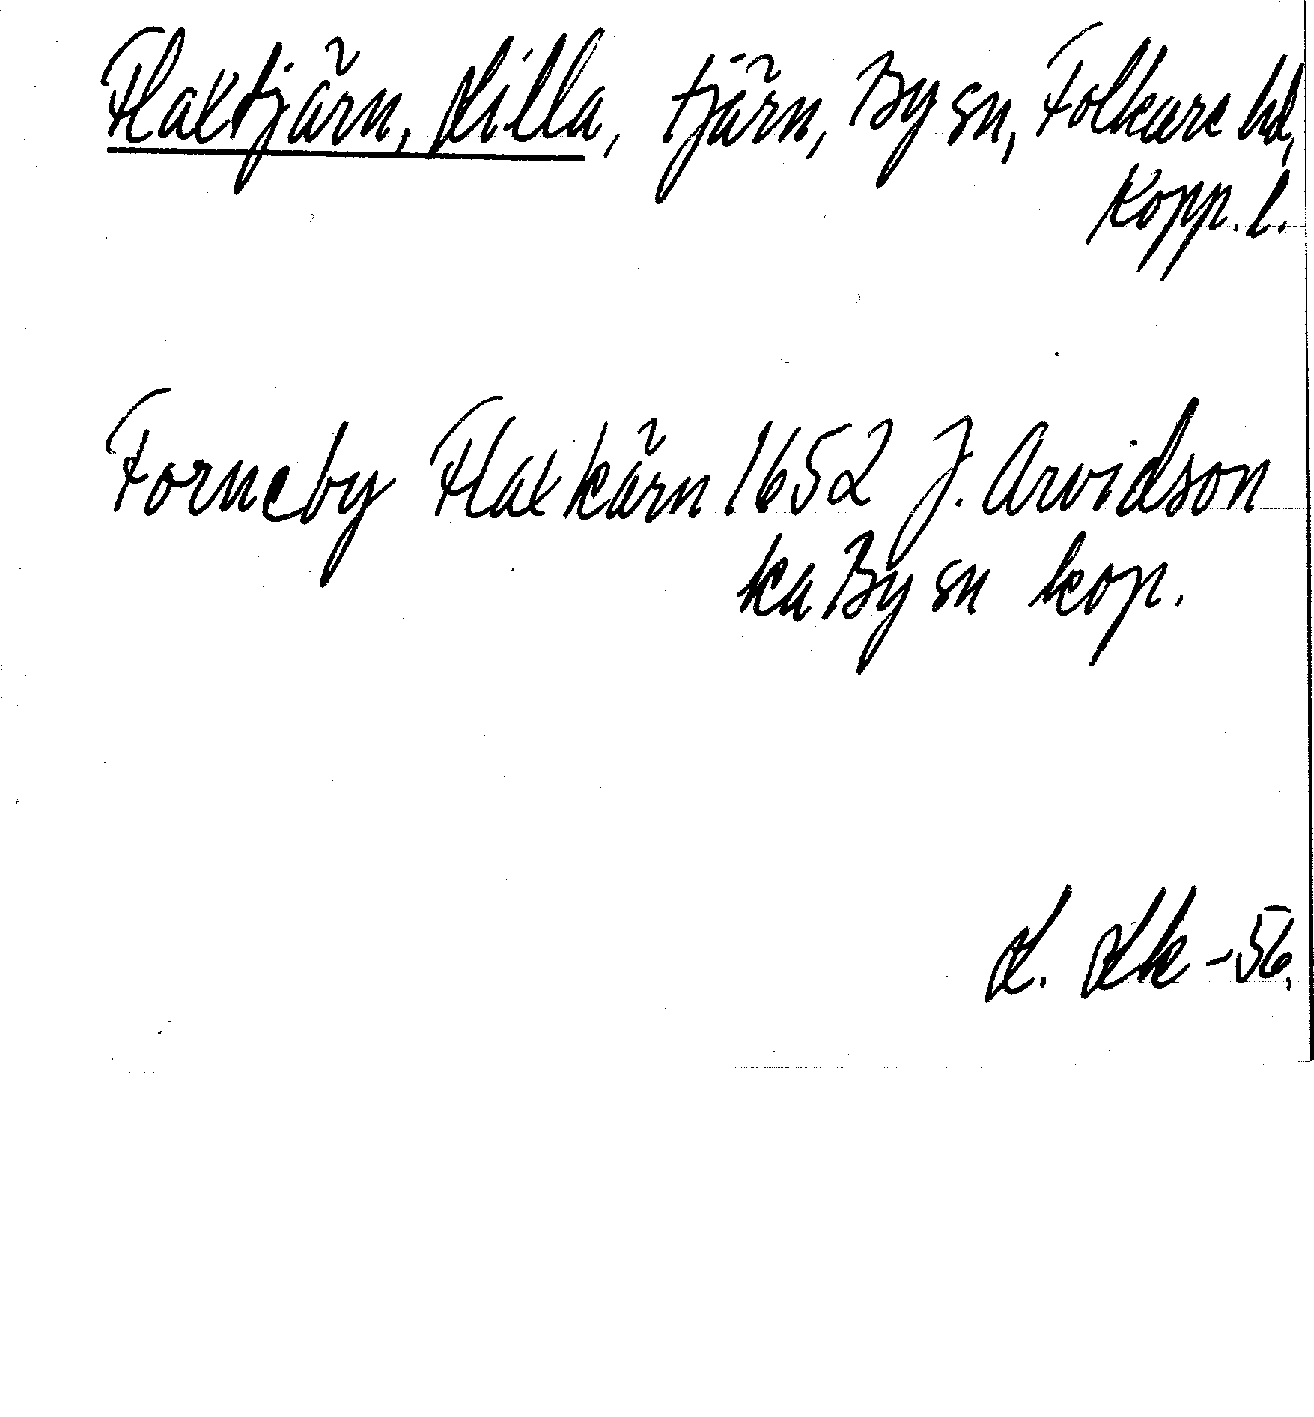 Flaxtjärn, Lilla, tjärn, By sn, Folkare hd,
Kopp. l.
Forneby Flaxkärn 1652 J. Arvidson
ka By sn kop.
L. Lk -56.